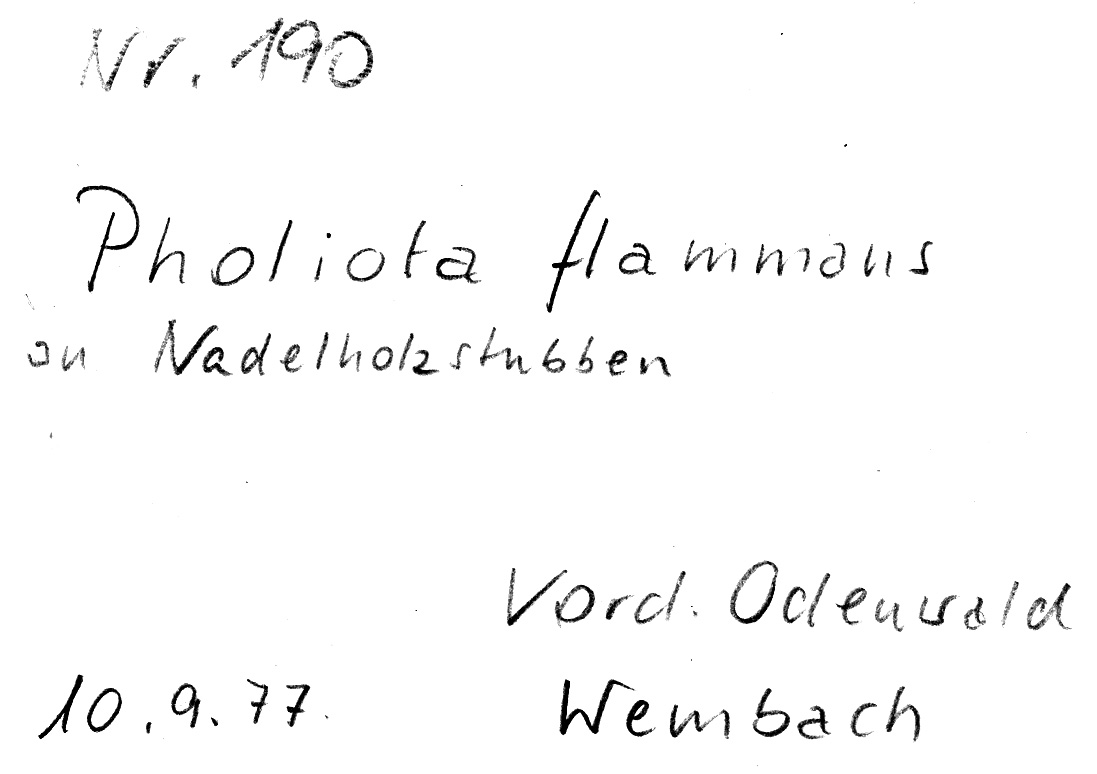 Nr. 190
Pholiota flammans
an Nadelholzstubben
Vord. Odenwald
10.9.77 Wembach